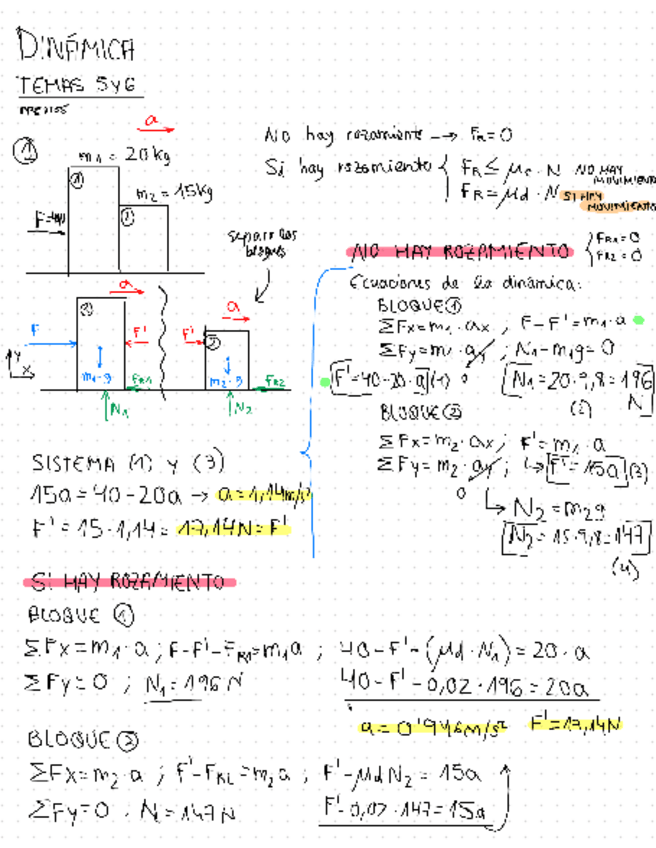 DINÁMICA
TEMAS 5 y 6
a
① m1 = 20kg
①
m2 = 15kg
②
No hay rozamiento → FR = 0
Si hay rozamiento { FR ≤ μe · N NO HAY MOVIMIENTO
FR = μd · N SI HAY MOVIMIENTO
separo los bloques
NO HAY ROZAMIENTO { FR1 = 0
FR2 = 0
a
F
F'
m1·g
FR1
N1
Y
X
a
F'
②
m2·g
FR2
N2
Ecuaciones de la dinámica:
BLOQUE ①
ΣFx = m1 · ax ; F - F' = m1 · a
ΣFy = m1 · ay ; N1 - m1g = 0
0
F' = 40 - 20 · a (1)
N1 = 20 · 9,8 = 196 N
(2)
BLOQUE ②
ΣFx = m2 · ax ; F' = m1 · a
ΣFy = m2 · ay ; → F' = 15a (3)
0
→ N2 = m2g
N2 = 15 · 9,8 = 147
(4)
SISTEMA (1) y (3)
15a = 40 - 20a → a = 1,14m/s²
F' = 15 · 1,14 = 17,14N = F'
SI HAY ROZAMIENTO
BLOQUE ①
ΣFx = m1 · a ; F - F' - FR1 = m1a ; 40 - F' - (μd · N1) = 20 · a
ΣFy = 0 ; N1 = 196 N
40 - F' - 0,02 · 196 = 20a
a = 0'946m/s² F' = 17,14N
BLOQUE ②
ΣFx = m2 · a ; F' - FR2 = m2a ; F' - μdN2 = 15a
ΣFy = 0 . N2 = 147N
F' - 0,02 · 147 = 15a